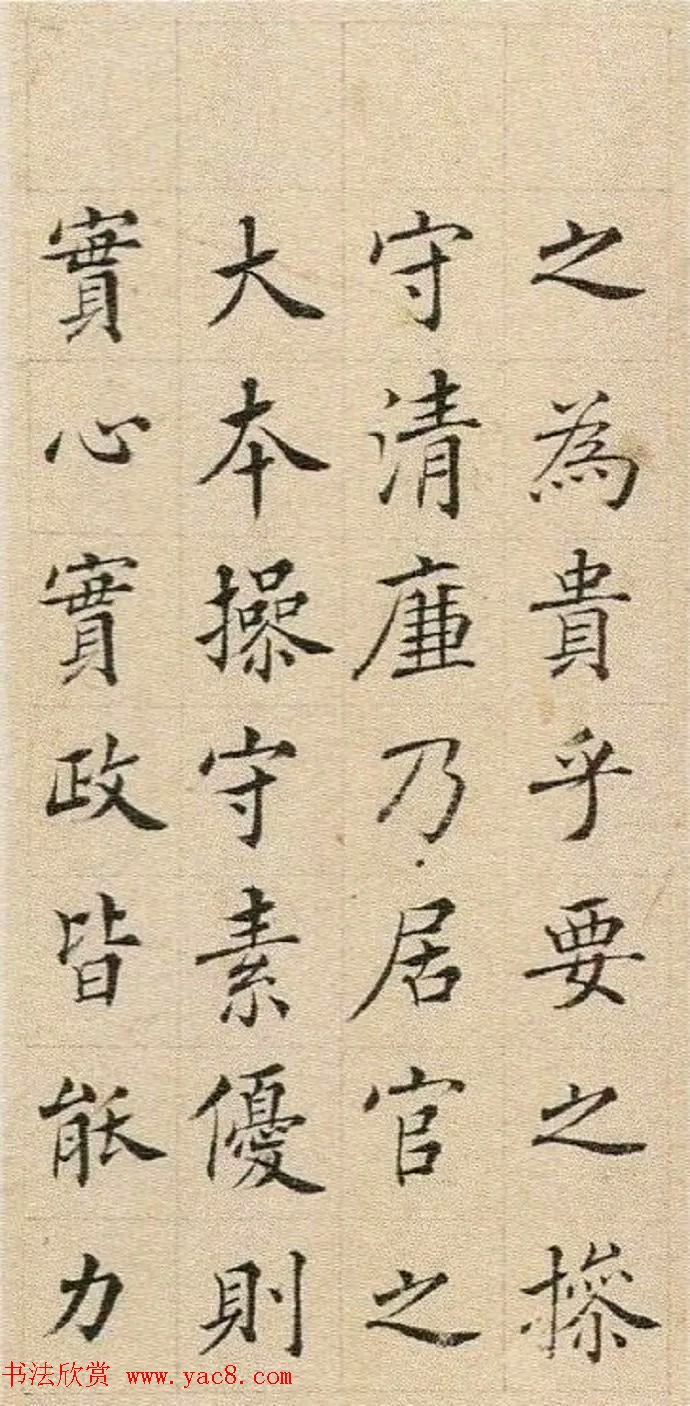 之為貴乎要之操
守清廉乃居官之
大本操守素優則
實心實政皆能力
书法欣赏 www.yac8.com